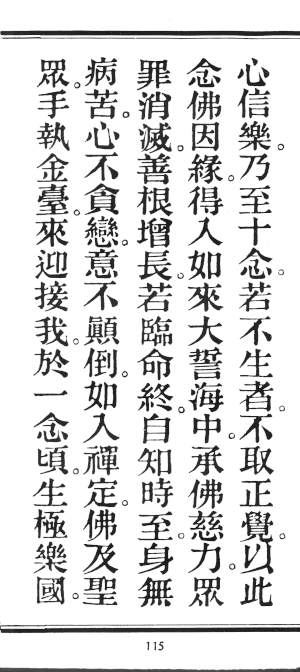 心信樂。乃至十念。若不生者。不取正覺。以此
念佛因緣。得入如來大誓海中。承佛慈力。眾
罪消滅。善根增長。若臨命終。自知時至。身無
病苦。心不貪戀。意不顚倒。如入禪定。佛及聖
眾。手執金臺。來迎接我。於一念頃。生極樂國。
115